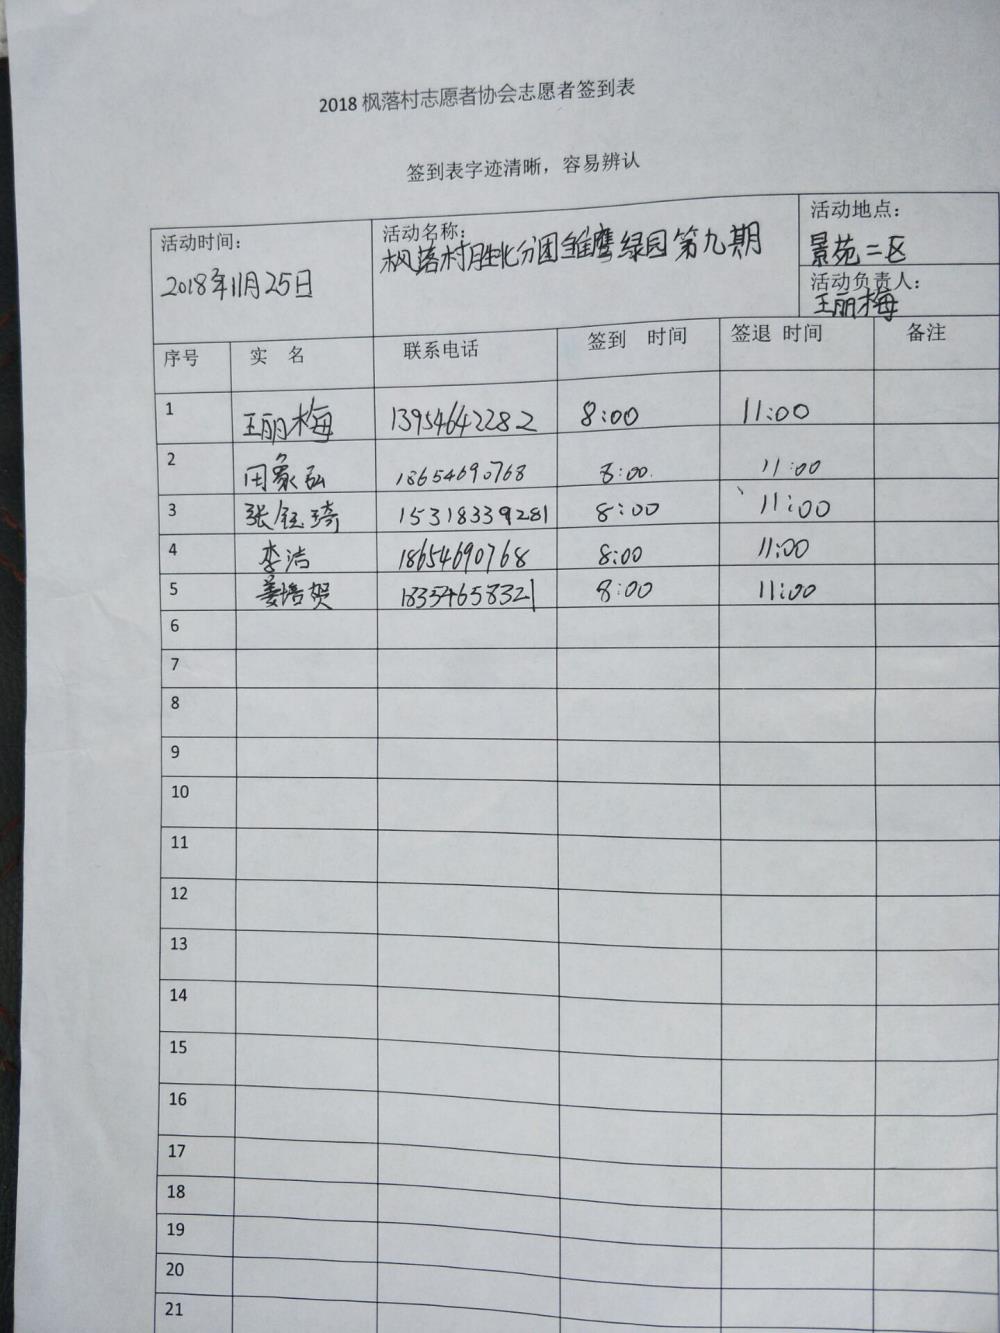 2018 枫落村志愿者协会志愿者签到表
签到表字迹清晰，容易辨认
活动时间：
2018年11月25日
活动名称：
枫落村胜北分团雏鹰绿园第九期
活动地点：
景苑二区
活动负责人：
王丽梅
序号 实 名 联系电话 签到 时间 签退 时间 备注
1 王丽梅 13954642282 8:00 11:00
2 田象弘 18654690768 8:00 11:00
3 张钰琦 15318339281 8:00 11:00
4 李洁 18654690768 8:00 11:00
5 姜培贺 18354658321 8:00 11:00
6
7
8
9
10
11
12
13
14
15
16
17
18
19
20
21